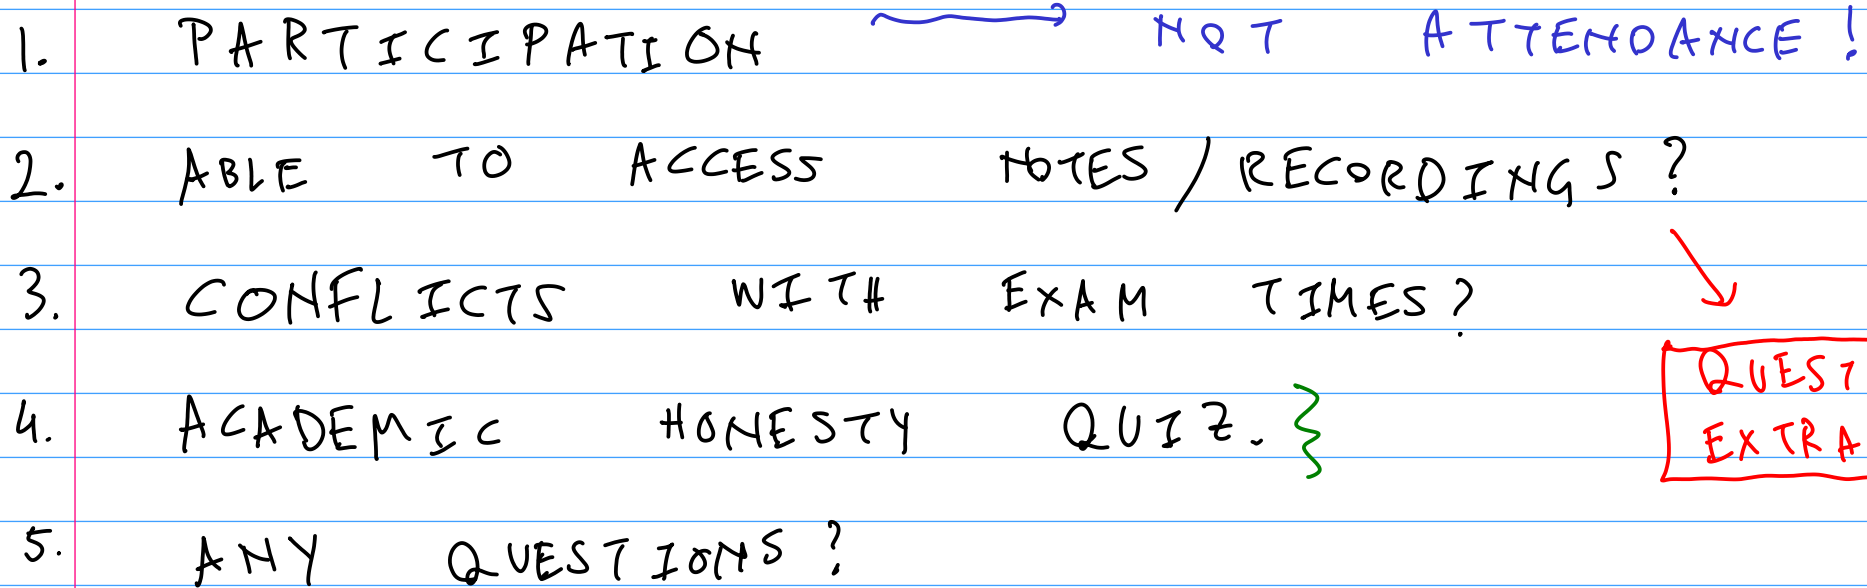 1. PARTICIPATION → NOT ATTENDANCE!
2. ABLE TO ACCESS NOTES/RECORDINGS?
3. CONFLICTS WITH EXAM TIMES?
QUEST
4. ACADEMIC HONESTY QUIZ.
EXTRA
5. ANY QUESTIONS?